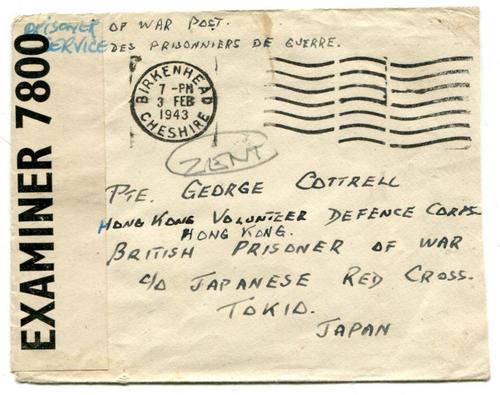 PRISONER OF WAR POST.
SERVICE DES PRISONNIERS DE GUERRE.
EXAMINER 7800
BIRKENHEAD
7 - PM
3 FEB
1943
CHESHIRE
ZENT
PTE. GEORGE COTTRELL
HONG KONG VOLUNTEER DEFENCE CORPS
HONG KONG.
BRITISH PRISONER OF WAR
C/O JAPANESE RED CROSS.
TOKIO.
JAPAN